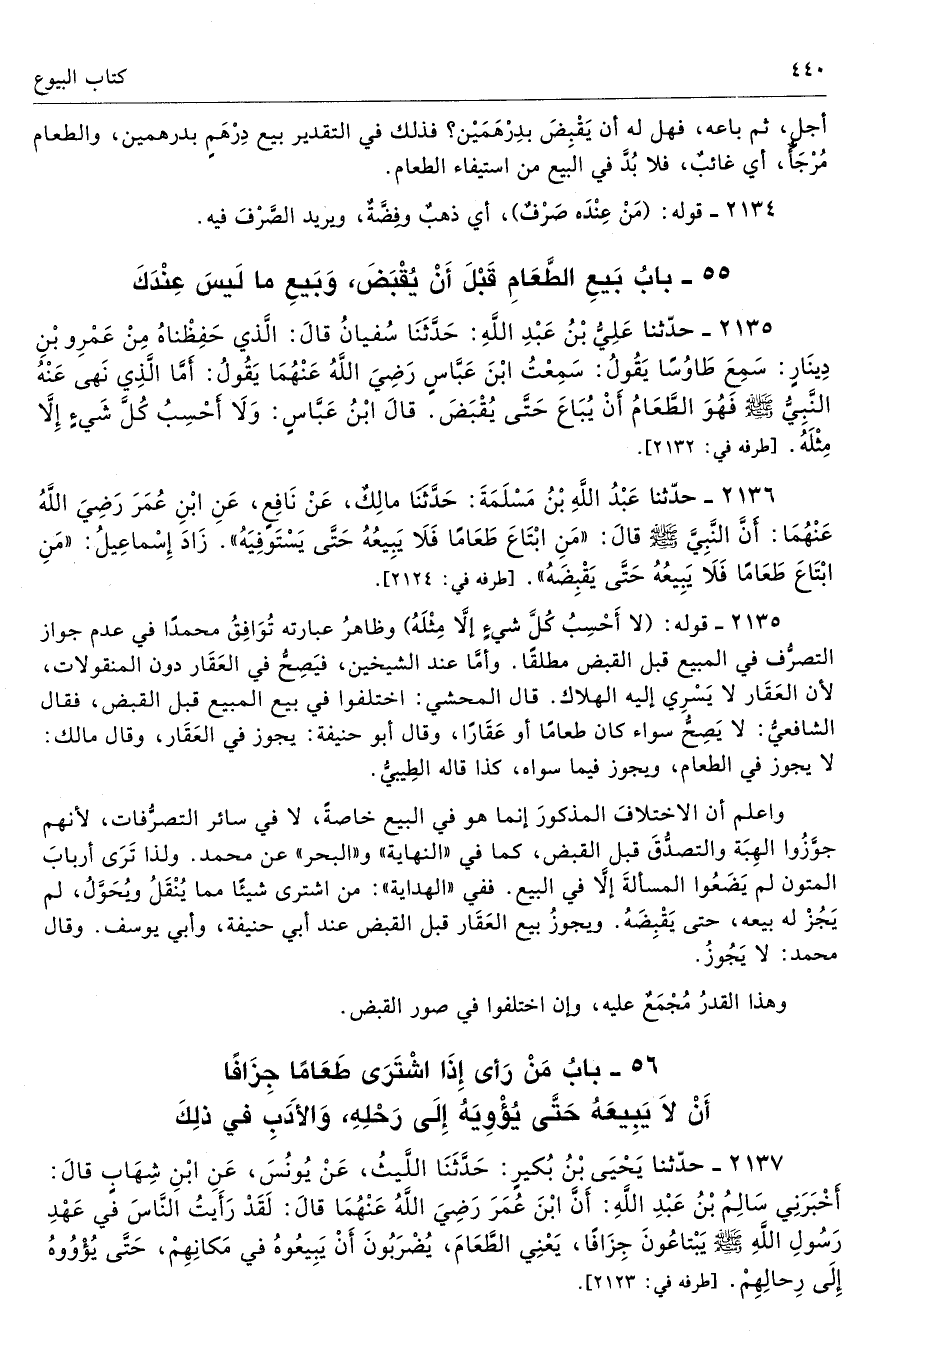 ٤٤٠
كتاب البيوع
أجلٍ، ثم باعه، فهل له أن يَقْبِضَ بدِرْهَمَيْن؟ فذلك في التقدير بيع دِرْهَمٍ بدرهمين، والطعام
مُرْجَأٌ، أي غائبٌ، فلا بُدَّ في البيع من استيفاء الطعام.
٢١٣٤ - قوله: (مَنْ عِنْدَه صَرْفٌ)، أي ذهبٌ وفِضَّةٌ، ويريد الصَّرْفَ فيه.
٥٥ - بابُ بَيعِ الطَّعَامِ قَبْلَ أَنْ يُقْبَضَ، وَبَيعِ ما لَيسَ عِنْدَكَ
٢١٣٥ - حدّثنا عَلِيُّ بْنُ عَبْدِ اللَّهِ: حَدَّثَنَا سُفيانُ قالَ: الَّذي حَفِظْناهُ مِنْ عَمْرِو بْنِ
دِينَارٍ: سَمِعَ طَاوُسًا يَقُولُ: سَمِعْتُ ابْنَ عَبَّاسٍ رَضِيَ اللَّهُ عَنْهُمَا يَقُولُ: أَمَّا الَّذِي نَهى عَنْهُ
النَّبِيُّ ﷺ فَهُوَ الطَّعَامُ أَنْ يُبَاعَ حَتَّى يُقْبَضَ. قالَ ابْنُ عَبَّاسٍ: وَلَا أَحْسِبُ كُلَّ شَيءٍ إِلَّا
مِثْلَهُ. [طرفه في: ٢١٣٢].
٢١٣٦ - حدّثنا عَبْدُ اللَّهِ بْنُ مَسْلَمَةَ: حَدَّثَنَا مالِكٌ، عَنْ نَافِعٍ، عَنِ ابْنِ عُمَرَ رَضِيَ اللَّهُ
عَنْهُمَا: أَنَّ النَّبِيَّ ﷺ قالَ: «مَنِ ابْتَاعَ طَعَامًا فَلَا يَبِيعُهُ حَتَّى يَسْتَوفِيَهُ». زَادَ إِسْماعِيلُ: «مَنِ
ابْتَاعَ طَعَامًا فَلَا يَبِيعُهُ حَتَّى يَقْبِضَهُ». [طرفه في: ٢١٢٤].
٢١٣٥ - قوله: (لا أَحْسِبُ كُلَّ شيءٍ إلَّا مِثْلَهُ) وظاهرُ عبارته تُوَافِقُ محمدًا في عدم جواز
التصرُّف في المبيع قبل القبض مطلقًا. وأمَّا عند الشيخين، فيَصِحُّ في العَقَار دون المنقولات،
لأن العَقَار لا يَسْرِي إليه الهلاك. قال المحشي: اختلفوا في بيع المبيع قبل القبض، فقال
الشافعيُّ: لا يَصِحُّ سواء كان طعامًا أو عَقَارًا، وقال أبو حنيفة: يجوز في العَقَار، وقال مالك:
لا يجوز في الطعام، ويجوز فيما سواه، كذا قاله الطِيبيُّ.
واعلم أن الاختلافَ المذكورَ إنما هو في البيع خاصةً، لا في سائر التصرُّفات، لأنهم
جوَّزُوا الهِبَة والتصدُّقَ قبل القبض، كما في «النهاية» و«البحر» عن محمد. ولذا تَرَى أربابَ
المتون لم يَضَعُوا المسألةَ إلَّا في البيع. ففي «الهداية»: من اشترى شيئًا مما يُنْقَلُ ويُحَوَّلُ، لم
يَجُزْ له بيعه، حتى يَقْبِضَهُ. ويجوزُ بيع العَقَار قبل القبض عند أبي حنيفة، وأبي يوسف. وقال
محمد: لا يَجُوزُ.
وهذا القدرُ مُجْمَعٌ عليه، وإن اختلفوا في صور القبض.
٥٦ - بابُ مَنْ رَأى إِذَا اشْتَرَى طَعَامًا جِزَافًا
أَنْ لاَ يَبِيعَهُ حَتَّى يُؤْوِيَهُ إِلَى رَحْلِهِ، وَالأَدَبِ في ذلِكَ
٢١٣٧ - حدّثنا يَحْيَى بْنُ بُكَيرٍ: حَدَّثَنَا اللَّيثُ، عَنْ يُونُسَ، عَنِ ابْنِ شِهَابٍ قالَ:
أَخْبَرَنِي سَالِمُ بْنُ عَبْدِ اللَّهِ: أَنَّ ابْنَ عُمَرَ رَضِيَ اللَّهُ عَنْهُمَا قالَ: لَقَدْ رَأَيتُ النَّاسَ في عَهْدِ
رَسُولِ اللَّهِ ﷺ يَبْتاعُونَ جِزَافًا، يَعْنِي الطَّعَامَ، يُضْرَبُونَ أَنْ يَبِيعُوهُ في مَكانِهِمْ، حَتَّى يُؤْوُوهُ
إِلَى رِحالِهِمْ. [طرفه في: ٢١٢٣].